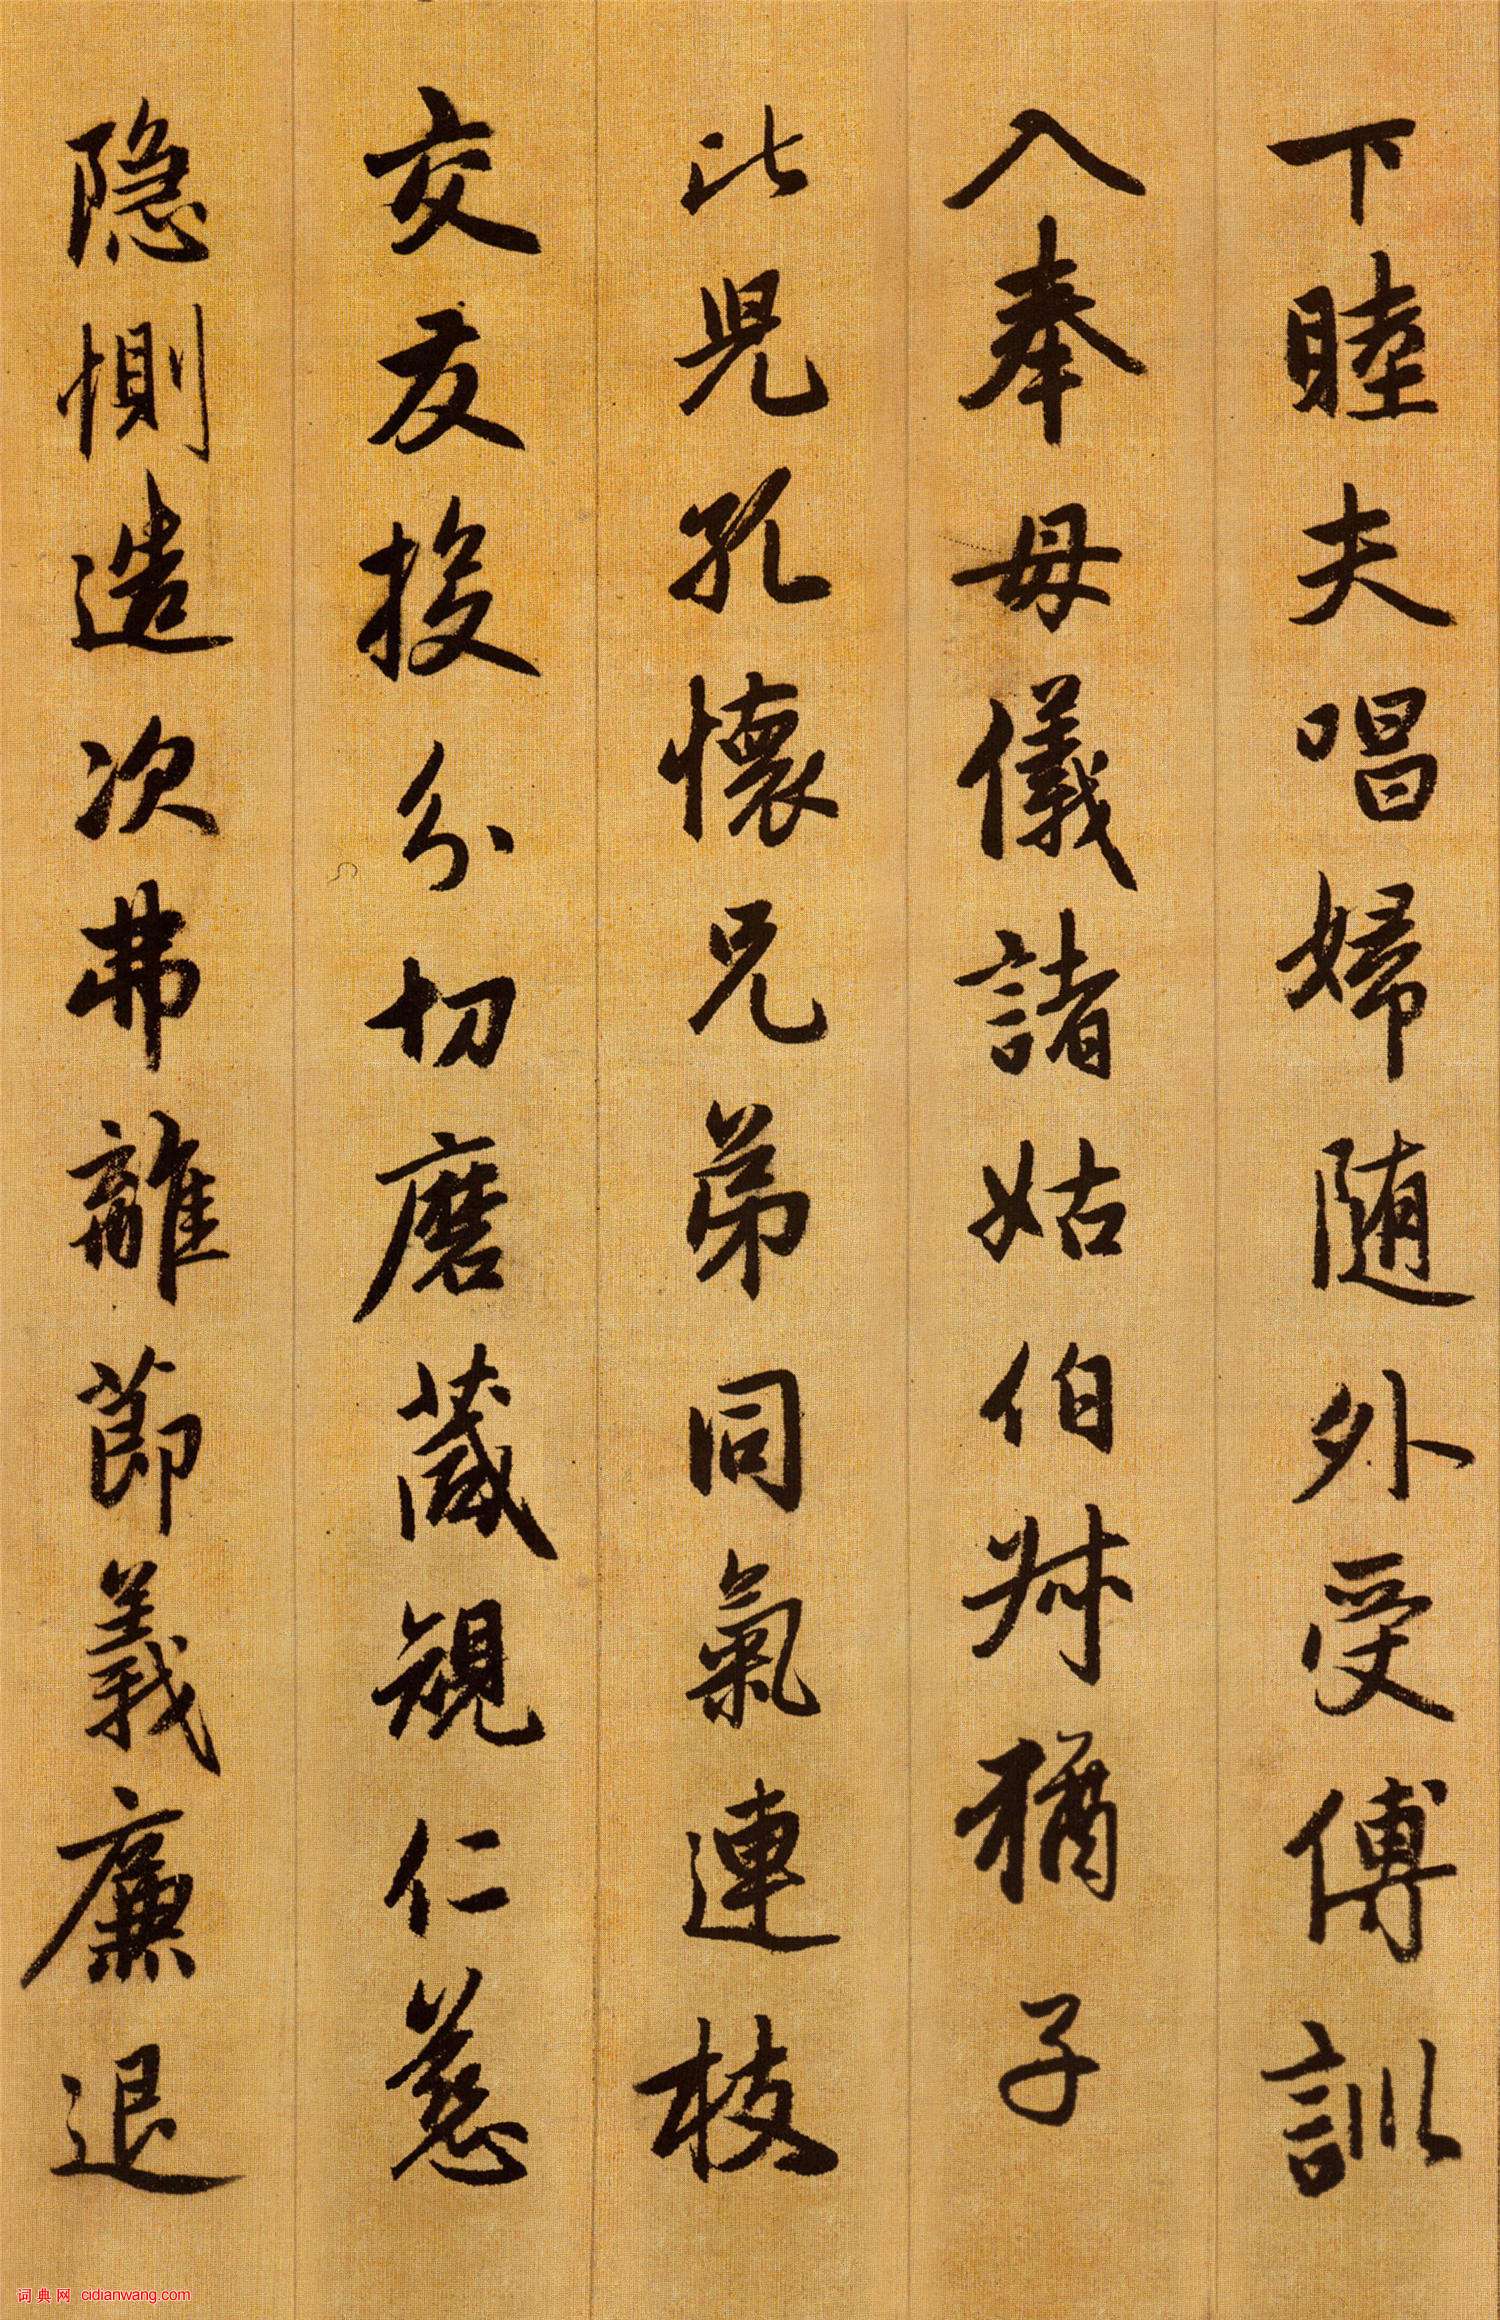 下睦夫唱婦随外受傅訓
入奉母儀諸姑伯叔猶子
比兒孔懷兄弟同氣連枝
交友投分切磨箴規仁慈
隐惻造次弗離節義廉退
词典网 cidianwang.com